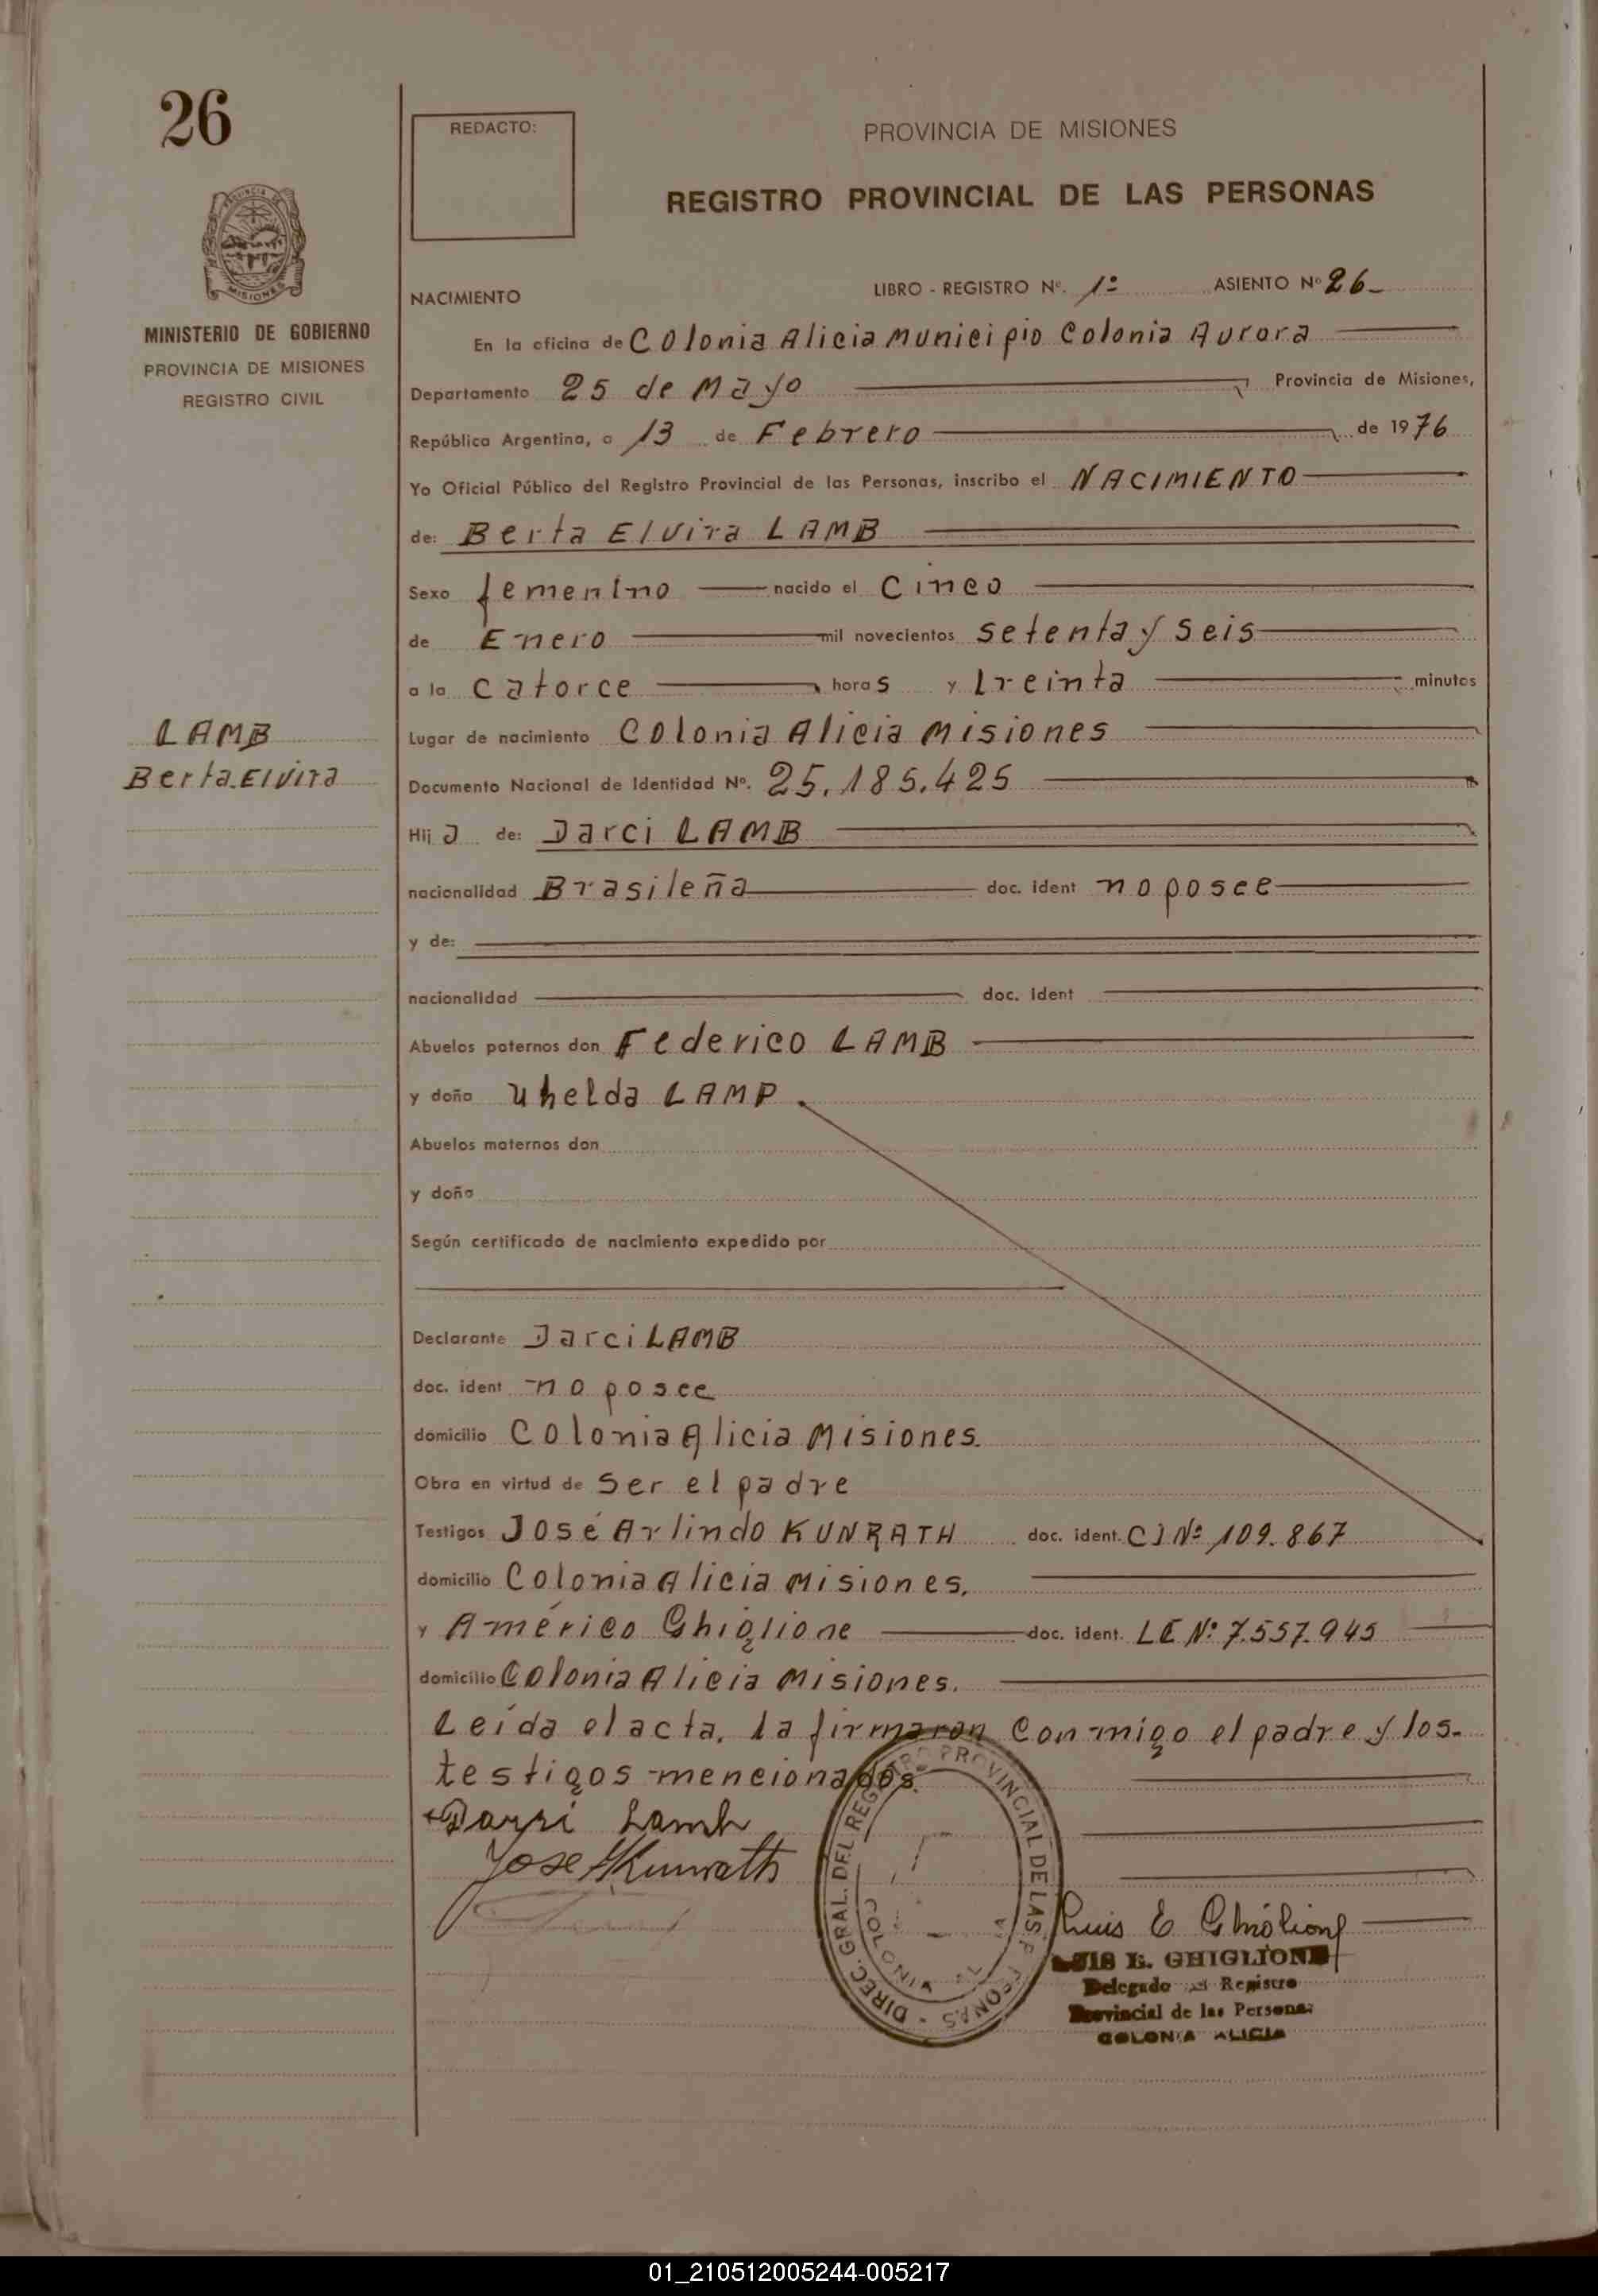 26
REDACTO:
PROVINCIA DE MISIONES
REGISTRO PROVINCIAL DE LAS PERSONAS
PROVINCIA DE
MISIONES
MINISTERIO DE GOBIERNO
PROVINCIA DE MISIONES
REGISTRO CIVIL
NACIMIENTO
LIBRO - REGISTRO Nº. 1º ASIENTO Nº 26_
En la oficina de Colonia Alicia Municipio Colonia Aurora
Departamento 25 de Mayo Provincia de Misiones,
República Argentina, a 13 de Febrero de 1976
Yo Oficial Público del Registro Provincial de las Personas, inscribo el NACIMIENTO
de: Berta Elvira LAMB
Sexo femenino nacido el Cinco
de Enero mil novecientos setenta y seis
a la Catorce horas y treinta minutos
LAMB
Berta Elvira
Lugar de nacimiento Colonia Alicia Misiones
Documento Nacional de Identidad Nº. 25.185.425
Hija de: Darci LAMB
nacionalidad Brasileña doc. ident no posee
y de:
nacionalidad doc. ident
Abuelos paternos don Federico LAMB
y doña Uhelda LAMP.
Abuelos maternos don
y doña
Según certificado de nacimiento expedido por
Declarante Darci LAMB
doc. ident no posee
domicilio Colonia Alicia Misiones.
Obra en virtud de Ser el padre
Testigos José Arlindo KUNRATH doc. ident. CI Nº 109.867
domicilio Colonia Alicia Misiones.
y Américo Ghiglione doc. ident. LE Nº 7.557.945
domicilio Colonia Alicia Misiones.
Leída el acta, la firmaran Conmigo el padre y los
testigos mencionados.
Darci Lamb
Jose A Kunrath
DIREC. GRAL. DEL REGISTRO PROVINCIAL DE LAS PERSONAS
COLONIA
Luis E Ghiglione
LUIS E. GHIGLIONE
Delegado Registro
Provincial de las Personas
COLONIA ALICIA
01_210512005244-005217